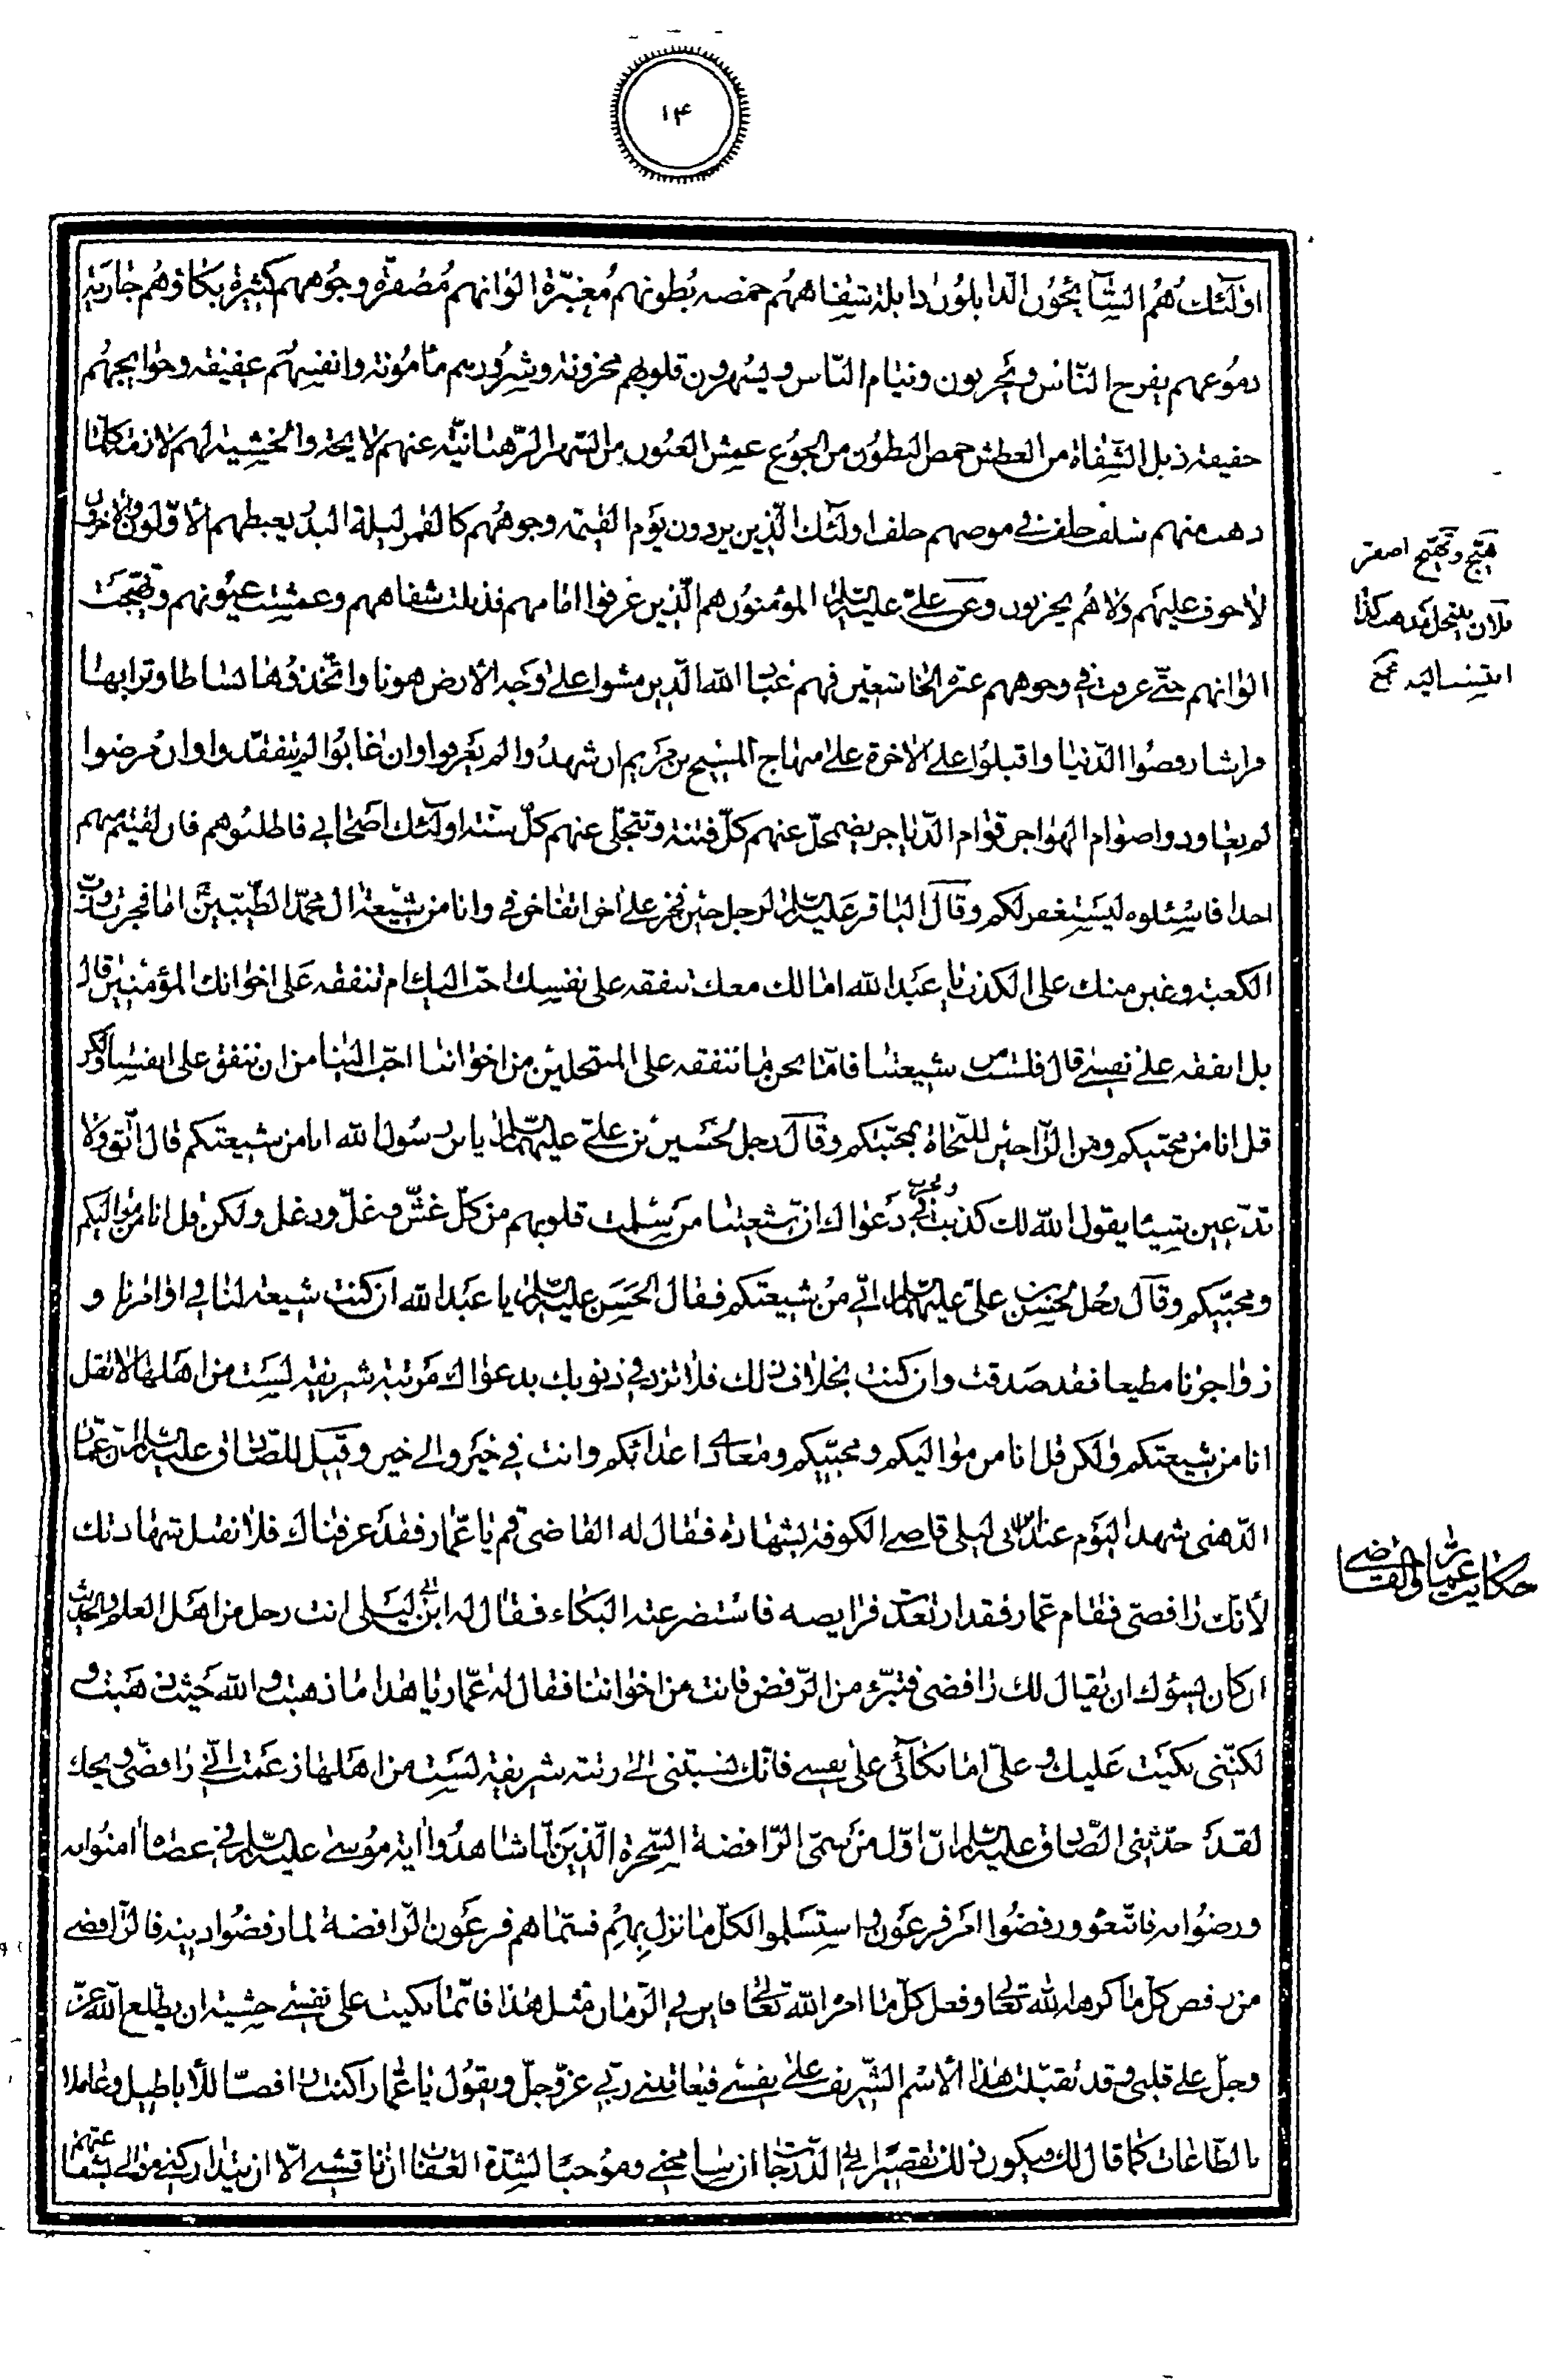 ١۴
اولئك هم السائحون الذابلون ذابلة شفاههم خمصه بطونهم مغبرّة الوانهم مصفرّة وجوههم كثيرة بكاؤهم جارية
دموعهم يفرح الناس ويحزنون وينام الناس ويسهرون قلوبهم محزونة وشرورهم مأمونة وانفسهم عفيفه وحوائجهم
خفيفة ذبل الشفاة من العطش خمص البطون من الجوع عمش العيون من السهر الرهبانية عنهم لايحة والخشية لهم لازمة كلما
ذهب منهم سلف خلف في موضعهم خلف اولئك الذين يردون يوم القيمة وجوههم كالقمر ليلة البدر يغبطهم الاولون والاخرون
لا خوف عليهم ولا هم يحزنون وعن علىّ عليه السلام المؤمنون هم الذين عرفوا امامهم فذبلت شفاههم وعمشت عيونهم وتهيّجت
الوانهم حتى عرفت في وجوههم غبرة الخاشعين فهم عباد الله الذين مشوا على وجه الارض هونا واتخذوها بساطا وترابها
فراشا رفضوا الدنيا واقبلوا على الاخرة على منهاج المسيح بن مريم ان شهدوا لم يعرفوا وان غابوا لم يتفقدوا وان مرضوا
لم يعادوا صوام الهواجر قوام الدياجر يضمحلّ عنهم كلّ فتنة وتنجلى عنهم كلّ سنة اولئك اصحابي فاطلبوهم فان لقيتم منهم
احدا فاسئلوه ليستغفر لكم وقال الباقر عليه السلام لرجل حين فخر على اخر اتفاخرني وانا من شيعة ال محمد الطيبين اما فخرت وربّ
الكعبة وغبن منك على الكذب يا عبد الله امالك معك تنفقه على نفسك احبّ اليك ام تنفقه على اخوانك المؤمنين قال
بل انفقه على نفسي قال فلست من شيعتنا فانّا نحن ما ننفقه على المنتحلين من اخواننا احبّ الينا من ان ننفق على انفسنا ولكن
قل انا من محبيكم ومن الراجين للنجاة بمحبتكم وقال رجل لحسين بن علىّ عليهما السلام يا بن رسول الله انا من شيعتكم قال اتق ولا
تدّعين شيئا يقول الله لك كذبت وفجرت في دعواك ان شيعتنا من سلمت قلوبهم من كلّ غشّ وغلّ ودغل ولكن قل انا من مواليكم
ومحبيكم وقال رجل لحسن بن علىّ عليهما السلام انّي من شيعتكم فقال الحسن عليه السلام يا عبد الله ان كنت شيعة لنا في اوامرنا و
زواجرنا مطيعا فقد صدقت وان كنت بخلاف ذلك فلا تزد في ذنوبك بدعواك مرتبة شريفة ليست من اهلها لا تقل
انا من شيعتكم ولكن قل انا من مواليكم ومحبيكم ومعادى اعدائكم وانت في خير والى خير وقيل للصادق عليه السلام ان عمار
الدهنى شهد اليوم عند ابن ابي ليلى قاضي الكوفة بشهادة فقال له القاضي قم يا عمار فقد عرفناك فلا نقبل شهادتك
لأنك رافضيّ فقام عمار فقد ارتعدت فرايصه فاستضرعته البكاء فقال له ابن ابي ليلى انت رجل من اهل العلم والحديث
ان كان يسؤك ان يقال لك رافضى فتبرّء من الرفض فانت من اخواننا فقال له عمار يا هذا ما ذهبت والله حيث ذهبت و
لكنّنى بكيت عليك وعلىّ اما بكائي على نفسي فانّك نسبتنى الى رتبة شريفة لست من اهلها زعمت انّي رافضيّ ويحك
لقد حدثنى الصادق عليه السلام انّ اوّل من سمّى الرافضة السحرة الذين لمّا شاهدوا اية موسى عليه السلام في عصاه امنوا به
ورضوا به فاتبعوه ورفضوا امر فرعون واستسلموا لكل ما نزل بهم فسمّاهم فرعون الرافضة لما رفضوا دينه فالرافضي
من رفض كل ما كرهه الله تعالى وفعل كل ما امره الله تعالى فاين في الزمان مثل هذا فانّما بكيت على نفسي خشية ان يطلع الله عز
وجلّ على قلبى وقد تقبّلت هذا الاسم الشريف على نفسي فيعاتبني ربّي عز وجلّ ويقول يا عمار اكنت رافضا للأباطيل وعاملا
بالطاعات كما قال لك فيكون ذلك تقصيرا بي الدرجات ان سامحني وموجبا لشدة العقاب ان ناقشني الّا ان يتداركني موالي بشفا
عتهم
هيّج وتهيّج اصفر
فلان ينتحل مذهب كذا
انتسب اليه مجمع
حكايت عمار والقاضي